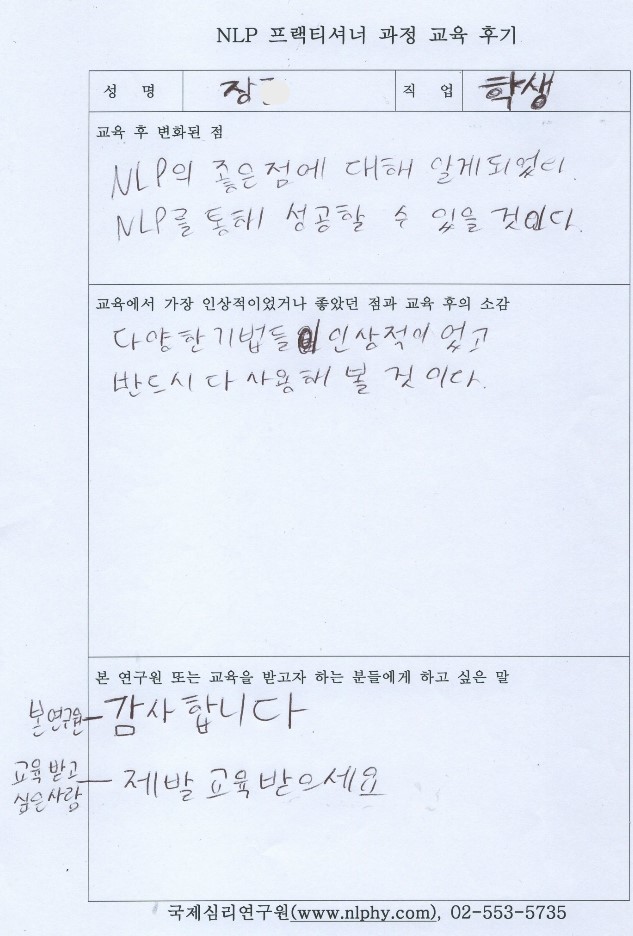 NLP 프랙티셔너 과정 교육 후기
성 명 장 직 업 학생
교육 후 변화된 점
NLP의 좋은점에 대해 알게되었다.
NLP를 통해 성공할 수 있을 것이다.
교육에서 가장 인상적이었거나 좋았던 점과 교육 후의 소감
다양한 기법들이 인상적이 었고
반드시 다 사용해 볼 것 이다.
본 연구원 또는 교육을 받고자 하는 분들에게 하고 싶은 말
본 연구원 - 감사합니다
교육 받고
싶은 사람 - 제발 교육 받으세요
국제심리연구원(www.nlphy.com), 02-553-5735